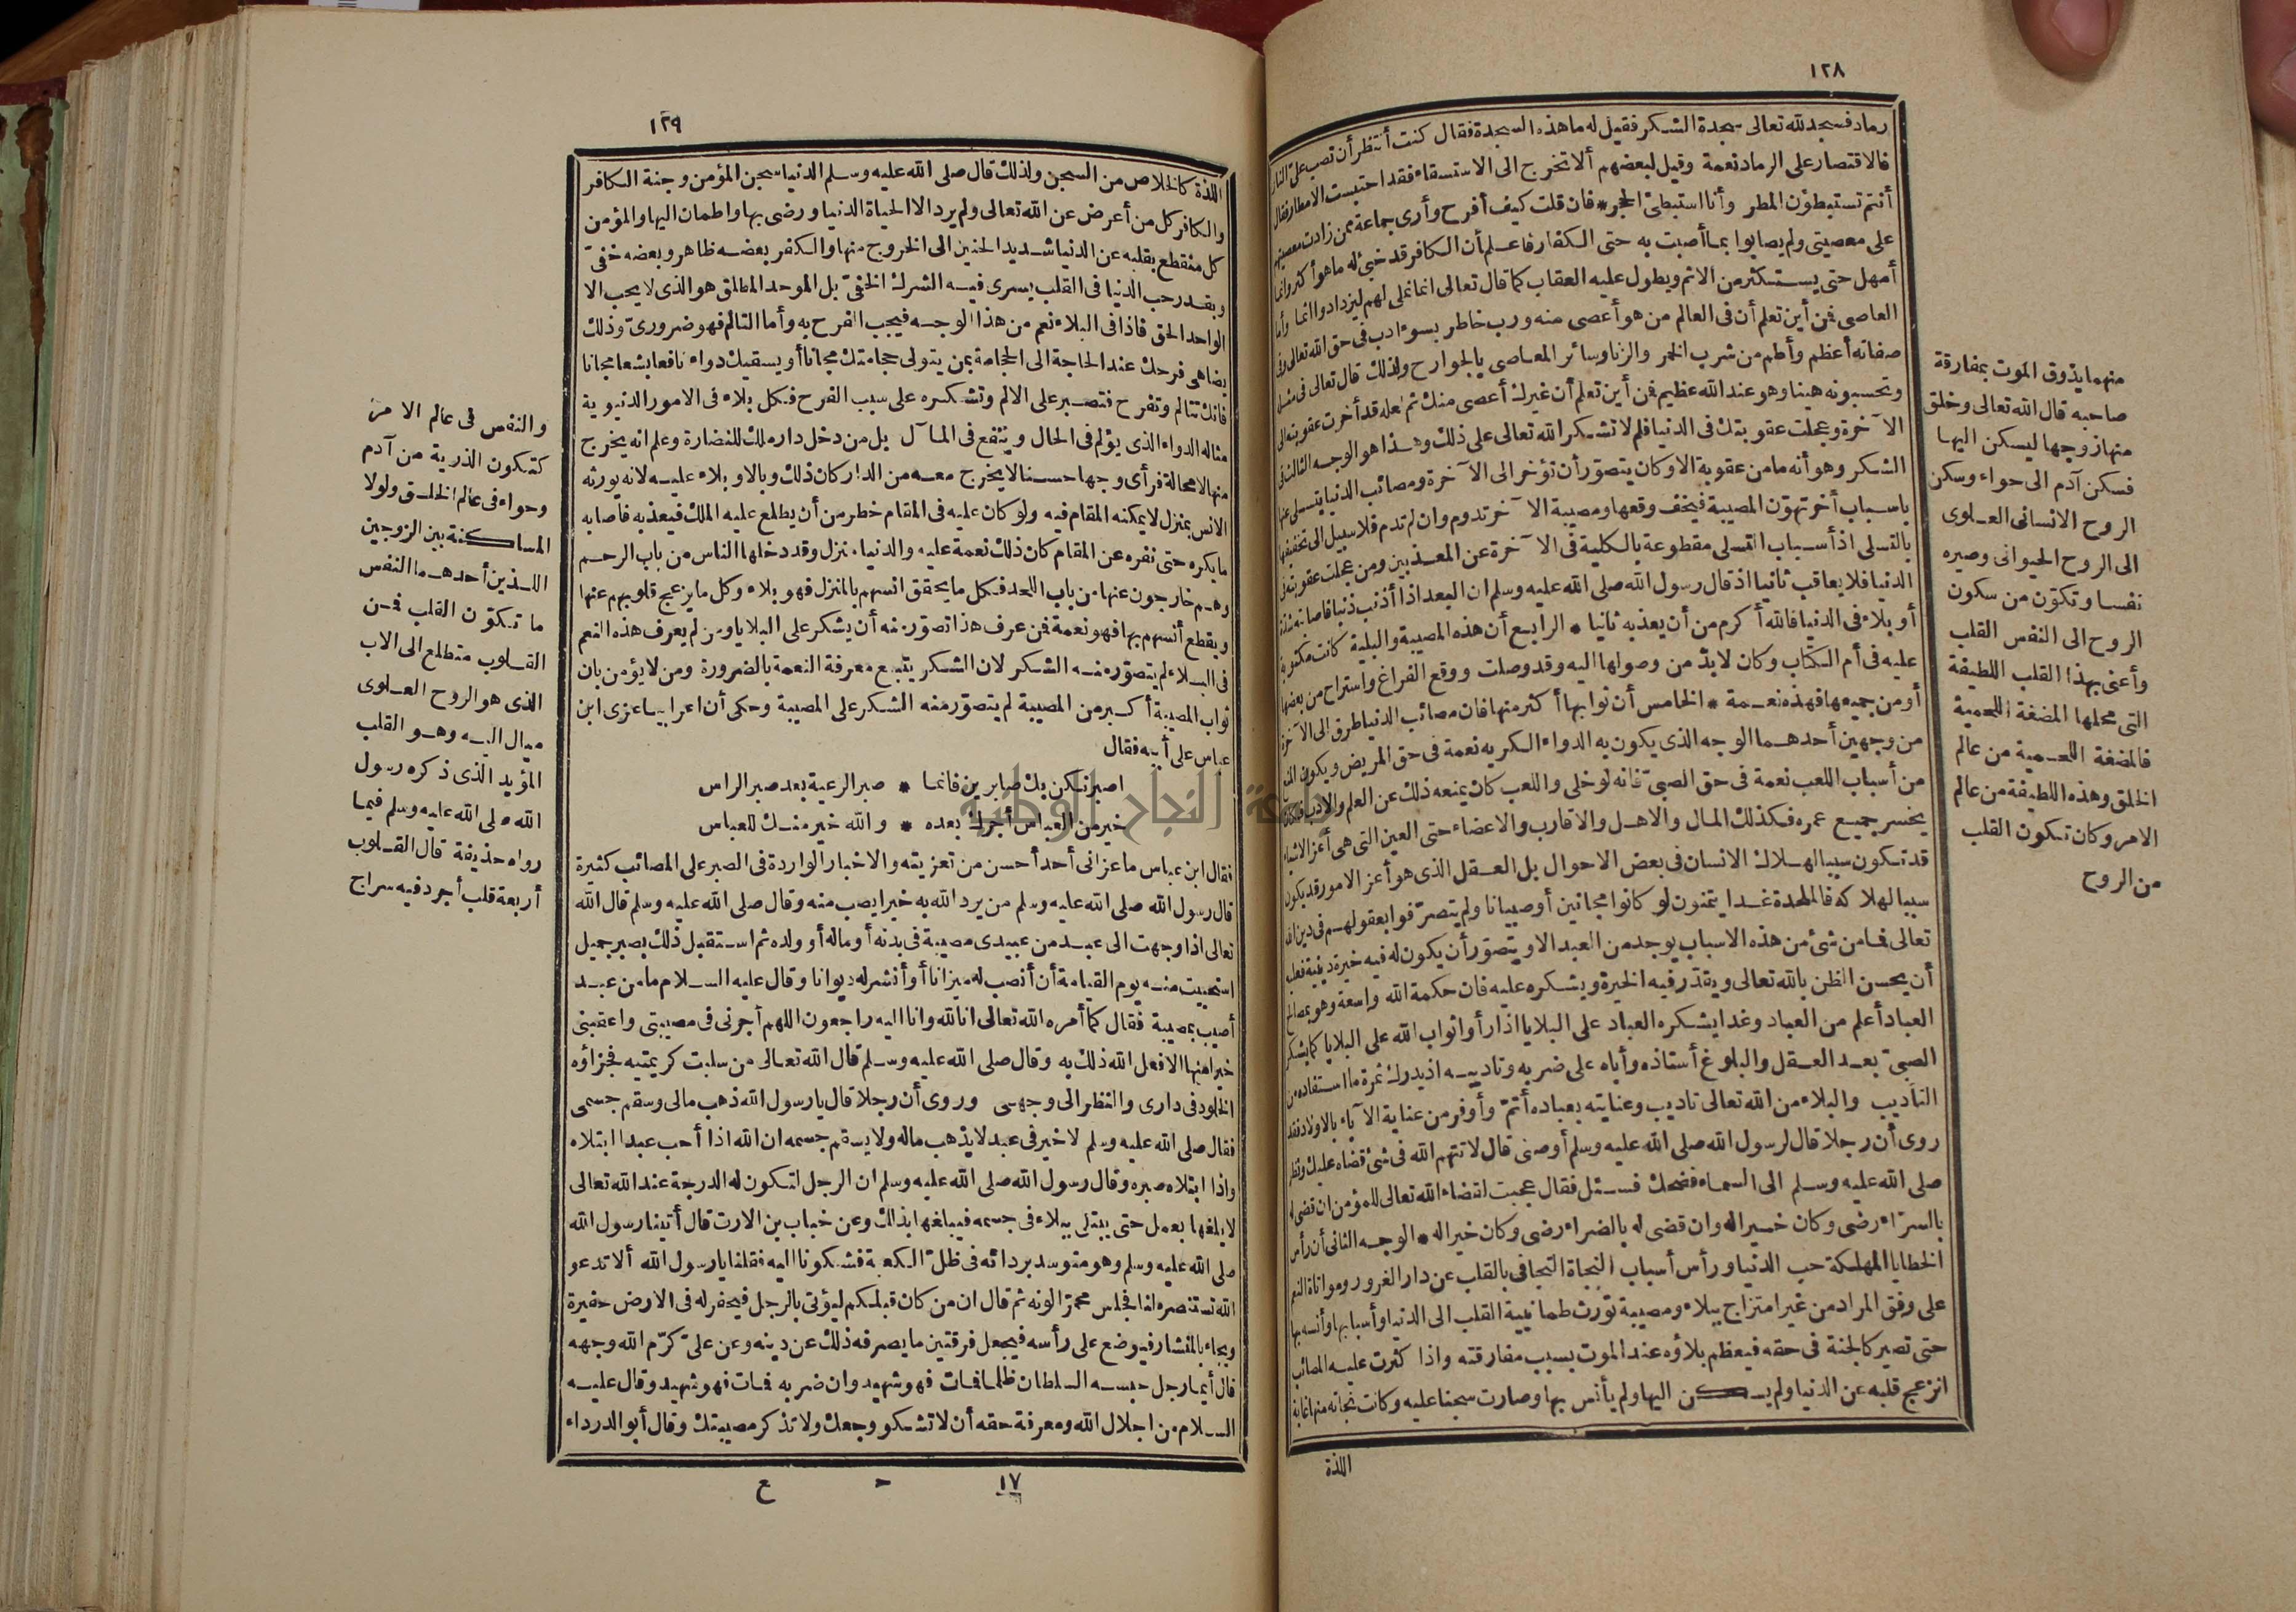 ١٢٨
رماد فسجد لله تعالى سجدة الشكر فقيل له ما هذه السجدة فقال كنت أنتظر أن تصب على النار
فالاقتصار على الرماد نعمة وقيل لبعضهم ألا تخرج الى الاستسقاء فقد احتبست الامطار فقال
أنتم تستبطؤن المطر وأنا استبطئ الحجر * فان قلت كيف أفرح وأرى جماعة ممن زادت معصيتهم
على معصيتى ولم يصابوا بما أصبت به حتى الكفار فاعلم أن الكافر قد خبئ له ما هو أكثر وانما
أمهل حتى يستكثر من الاثم ويطول عليه العقاب كما قال تعالى انما نملى لهم ليزدادوا اثما وأما
العاصى فمن أين تعلم أن فى العالم من هو أعصى منه ورب خاطر بسوء ادب فى حق الله تعالى وفى
صفاته أعظم وأطم من شرب الخمر والزنا وسائر المعاصى بالجوارح ولذلك قال تعالى فى مثله
وتحسبونه هينا وهو عند الله عظيم فمن أين تعلم أن غيرك أعصى منك ثم لعله قد أخرت عقوبته الى
الآخرة وعجلت عقوبتك فى الدنيا فلم لا تشكر الله تعالى على ذلك وهذا هو الوجه الثالث فى
الشكر وهو أنه ما من عقوبة الا وكان يتصوّر أن تؤخر الى الآخرة ومصائب الدنيا يتسلى عنها
باسباب أخر تهوّن المصيبة فيخف وقعها ومصيبة الآخر تدوم وان لم تدم فلا سبيل الى تخفيفها
بالتسلى اذ أسباب التسلى مقطوعة بالكلية فى الآخرة عن المعذبين ومن عجلت عقوبته فى
الدنيا فلا يعاقب ثانيا اذ قال رسول الله صلى الله عليه وسلم ان العبد اذا أذنب ذنبا فاصابته شدة
أو بلاء فى الدنيا فالله أكرم من أن يعذبه ثانيا * الرابع أن هذه المصيبة والبلية كانت مكتوبة
عليه فى أم الكتاب وكان لابدّ من وصولها اليه وقد وصلت ووقع الفراغ واستراح من بعضها
أو من جميعها فهذه نعمة * الخامس أن ثوابها أكثر منها فان مصائب الدنيا طرق الى الآخرة
من وجهين أحدهما الوجه الذى يكون به الدواء الكريه نعمة فى حق المريض ويكون المنع
من أسباب اللعب نعمة فى حق الصبىّ فانه لو خلى واللعب كان يمنعه ذلك عن العلم والادب فكان
يخسر جميع عمره فكذلك المال والاهل والاقارب والاعضاء حتى العين التى هى أعز الاشياء
قد تكون سببا لهلاك الانسان فى بعض الاحوال بل العقل الذى هو أعز الامور قد يكون
سببا لهلاكه فالملحدة غدا يتمنون لو كانوا مجانين أو صبيانا ولم يتصرّفوا بعقولهم فى دين الله
تعالى فما من شئ من هذه الاسباب يوجد من العبد الا ويتصوّر أن يكون له فيه خيرة دينية فعليه
أن يحسن الظن بالله تعالى ويقدّر فيه الخيرة ويشكره عليه فان حكمة الله واسعة وهو بمصالح
العباد أعلم من العباد وغدا يشكره العباد على البلايا اذا رأوا ثواب الله على البلايا كما يشكر
الصبىّ بعد العقل والبلوغ أستاذه وأباه على ضربه وتاديبه اذ يدرك ثمرة ما استفاده من
التأديب والبلاء من الله تعالى تاديب وعنايته بعباده أتمّ وأوفر من عناية الآباء بالاولاد فقد
روى أن رجلا قال لرسول الله صلى الله عليه وسلم أوصنى قال لا تتهم الله فى شئ قضاه عليك ونظر
صلى الله عليه وسلم الى السماء فضحك فسئل فقال عجبت لقضاء الله تعالى للمؤمن ان قضى له
بالسرّاء رضى وكان خيرا له وان قضى له بالضراء رضى وكان خيرا له * الوجه الثانى أن رأس
الخطايا المهلكة حب الدنيا ورأس أسباب النجاة التجافى بالقلب عن دار الغرور ومواتاة النعم
على وفق المراد من غير امتزاج ببلاء ومصيبة تورّث طمانينة القلب الى الدنيا وأسبابها وأنسه بها
حتى تصير كالجنة فى حقه فيعظم بلاؤه عند الموت بسبب مفارقته واذا كثرت عليه المصائب
انزعج قلبه عن الدنيا ولم يسكن اليها ولم يأنس بها وصارت سجنا عليه وكانت نجاته منها غاية
اللذة
منهما يذوق الموت بمفارقة
صاحبه قال الله تعالى وخلق
منها زوجها ليسكن اليها
فسكن آدم الى حواء وسكن
الروح الانسانى العلوى
الى الروح الحيوانى وصيره
نفسا وتكوّن من سكون
الروح الى النفس القلب
وأعنى بهذا القلب اللطيفة
التى محلها المضغة اللحمية
فالمضغة اللحمية من عالم
الخلق وهذه اللطيفة من عالم
الامر وكان تكون القلب
من الروح
١٢٩
اللذة كالخلاص من السجن ولذلك قال صلى الله عليه وسلم الدنيا سجن المؤمن وجنة الكافر
والكافر كل من أعرض عن الله تعالى ولم يرد الا الحياة الدنيا ورضى بها واطمان اليها والمؤمن
كل منقطع بقلبه عن الدنيا شديد الحنين الى الخروج منها والكفر بعضه ظاهر وبعضه خفىّ
وبقدر حب الدنيا فى القلب يسرى فيه الشرك الخفىّ بل الموحد المطلق هو الذى لا يحب الا
الواحد الحق فاذا فى البلاء نعم من هذا الوجه فيجب الفرح به وأما التالم فهو ضرورىّ وذلك
يضاهى فرحك عند الحاجة الى الحجامة بمن يتولى حجامتك مجانا أو يسقيك دواء نافعا بشعا مجانا
فانك تتالم وتفرح فتصبر على الالم وتشكره على سبب الفرح فكل بلاء فى الامور الدنيوية
مثاله الدواء الذى يؤلم فى الحال وينفع فى المآل بل من دخل دار ملك للنضارة وعلم انه يخرج
منها لا محالة فرأى وجها حسنا لا يخرج معه من الدار كان ذلك وبالا وبلاء عليه لانه يورثه
الانس بمنزل لا يمكنه المقام فيه ولو كان عليه فى المقام خطر من أن يطلع عليه الملك فيعذبه فاصابه
ما يكره حتى نفره عن المقام كان ذلك نعمة عليه والدنيا منزل وقد دخلها الناس من باب الرحم
وهم خارجون عنها من باب اللحد فكل ما يحقق انسهم بالمنزل فهو بلاء وكل ما يزعج قلوبهم عنها
ويقطع أنسهم بها فهو نعمة فمن عرف هذا تصوّر منه أن يشكر على البلايا ومن لم يعرف هذه النعم
فى البلاء لم يتصوّر منه الشكر لان الشكر يتبع معرفة النعمة بالضرورة ومن لا يؤمن بان
ثواب المصيبة أكبر من المصيبة لم يتصوّر منه الشكر على المصيبة وحكى أن اعرابيا عزى ابن
عباس على أبيه فقال
اصبر نكن بك صابرين فانما * صبر الرعية بعد صبر الراس
خير من العباس أجرك بعده * والله خير منك للعباس
فقال ابن عباس ما عزانى أحد أحسن من تعزيته والاخبار الواردة فى الصبر على المصائب كثيرة
قال رسول الله صلى الله عليه وسلم من يرد الله به خيرا يصب منه وقال صلى الله عليه وسلم قال الله
تعالى اذا وجهت الى عبد من عبيدى مصيبة فى بدنه أو ماله أو ولده ثم استقبل ذلك بصبر جميل
استحييت منه يوم القيامة أن أنصب له ميزانا أو أنشر له ديوانا وقال عليه السلام ما من عبد
أصيب بمصيبة فقال كما أمره الله تعالى انا لله وانا اليه راجعون اللهم أجرنى فى مصيبتى واعقبنى
خيرا منها الا فعل الله ذلك به وقال صلى الله عليه وسلم قال الله تعالى من سلبت كريمتيه فجزاؤه
الخلود فى دارى والنظر الى وجهى وروى أن رجلا قال يا رسول الله ذهب مالى وسقم جسمى
فقال صلى الله عليه وسلم لا خير فى عبد لا يذهب ماله ولا يسقم جسمه ان الله اذا أحب عبدا ابتلاه
واذا ابتلاه صبره وقال رسول الله صلى الله عليه وسلم ان الرجل لتكون له الدرجة عند الله تعالى
لا يبلغها بعمل حتى يبتلى ببلاء فى جسمه فيبلغها بذلك وعن خباب بن الارت قال أتينا رسول الله
صلى الله عليه وسلم وهو متوسد بردائه فى ظلّ الكعبة فشكونا اليه فقلنا يا رسول الله ألا تدعو
الله تستنصره لنا فجلس محمرّا لونه ثم قال ان من كان قبلكم ليؤتى بالرجل فيحفر له فى الارض حفيرة
ويجاء بالمنشار فيوضع على رأسه فيجعل فرقتين ما يصرفه ذلك عن دينه وعن علىّ كرّم الله وجهه
قال أيما رجل حبسه السلطان ظلما فمات فهو شهيد وان ضربه فمات فهو شهيد وقال عليه
السلام من اجلال الله ومعرفة حقه أن لا تشكو وجعك ولا تذكر مصيبتك وقال أبو الدرداء
١٧ - ع
والنفس فى عالم الامر
كتكون الذرية من آدم
وحواء فى عالم الخلق ولولا
المساكنة بين الزوجين
اللذين أحدهما النفس
ما تكوّن القلب فمن
القلوب متطلع الى الاب
الذى هو الروح العلوى
ميال اليه وهو القلب
المؤيد الذى ذكره رسول
الله صلى الله عليه وسلم فيما
رواه حذيفة قال القلوب
أربعة قلب أجرد فيه سراج
جامعة النجاح الوطنية